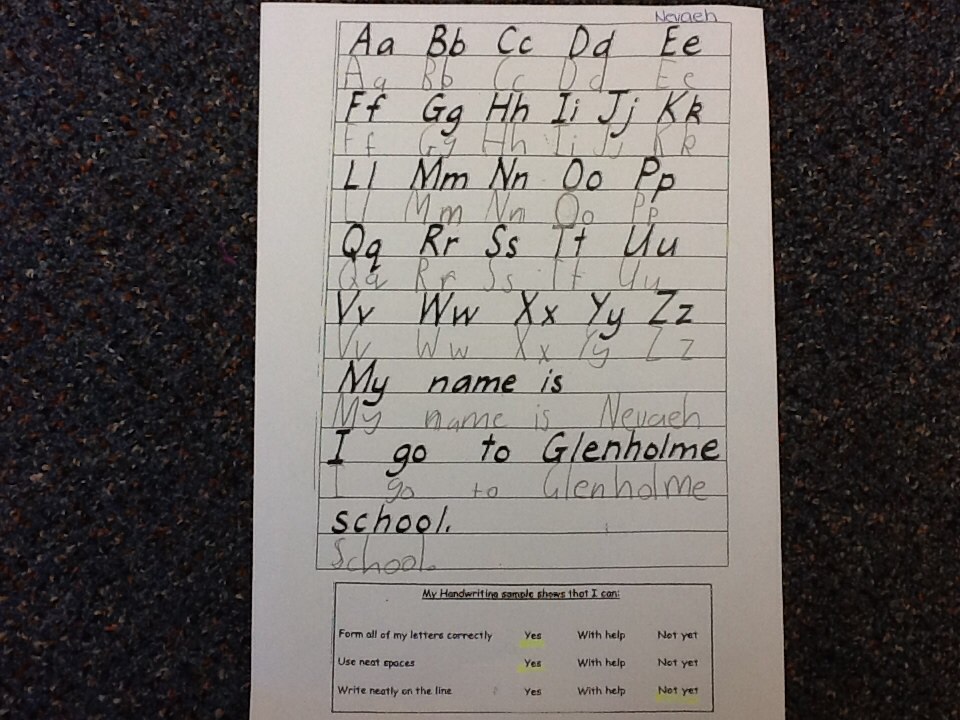 Nevaeh
Aa Bb Cc Dd Ee
Aa Bb Cc Dd Ee
Ff Gg Hh Ii Jj Kk
Ff Gg Hh Ii Jj Kk
Ll Mm Nn Oo Pp
Ll Mm Nn Oo Pp
Qq Rr Ss Tt Uu
Qq Rr Ss Tt Uu
Vv Ww Xx Yy Zz
Vv Ww Xx Yy Zz
My name is
My name is Nevaeh
I go to Glenholme
I go to Glenholme
school.
School.
My Handwriting sample shows that I can:
Form all of my letters correctly Yes With help Not yet
Use neat spaces Yes With help Not yet
Write neatly on the line Yes With help Not yet